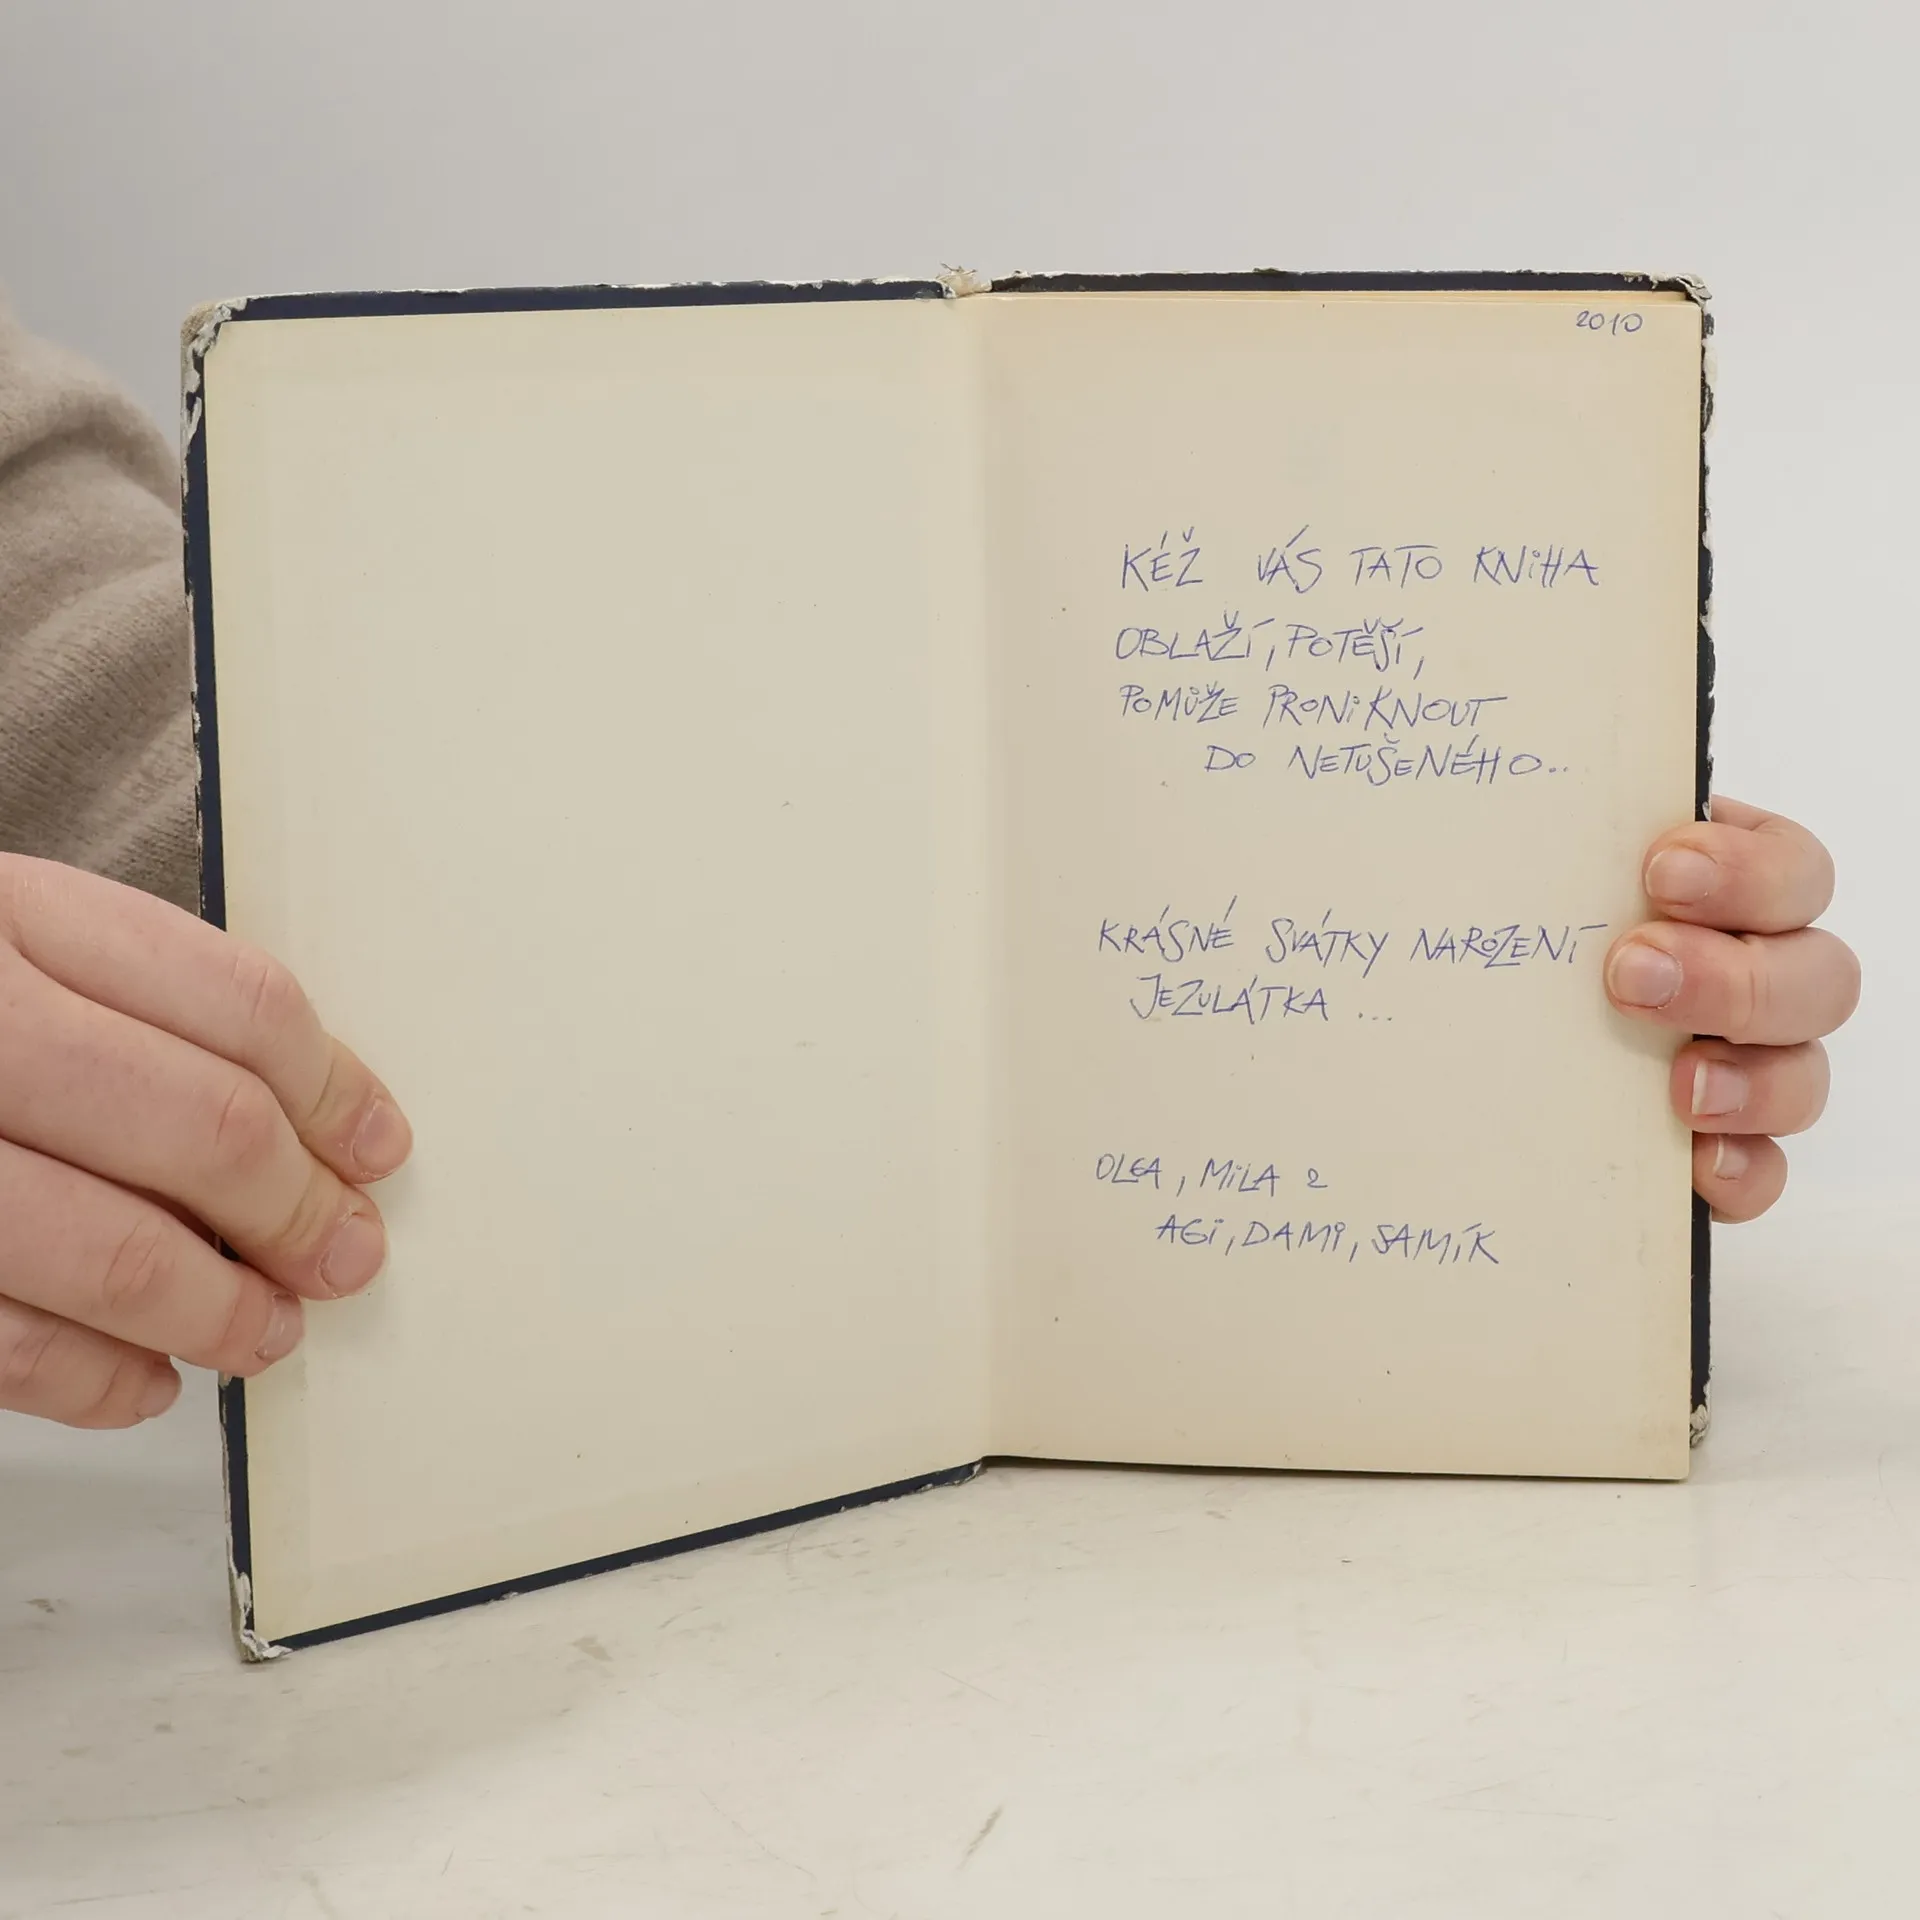 2010
KÉŽ VÁS TATO KNiHA
OBLAŽÍ, POTĚŠÍ,
POMŮŽE PRONiKNOUT
DO NETUŠENÉHO..
KRÁSNÉ SVÁTKY NAROZENÍ
JEZULÁTKA ...
OLGA, MiLA 2
AGi, DAMi, SAMÍK